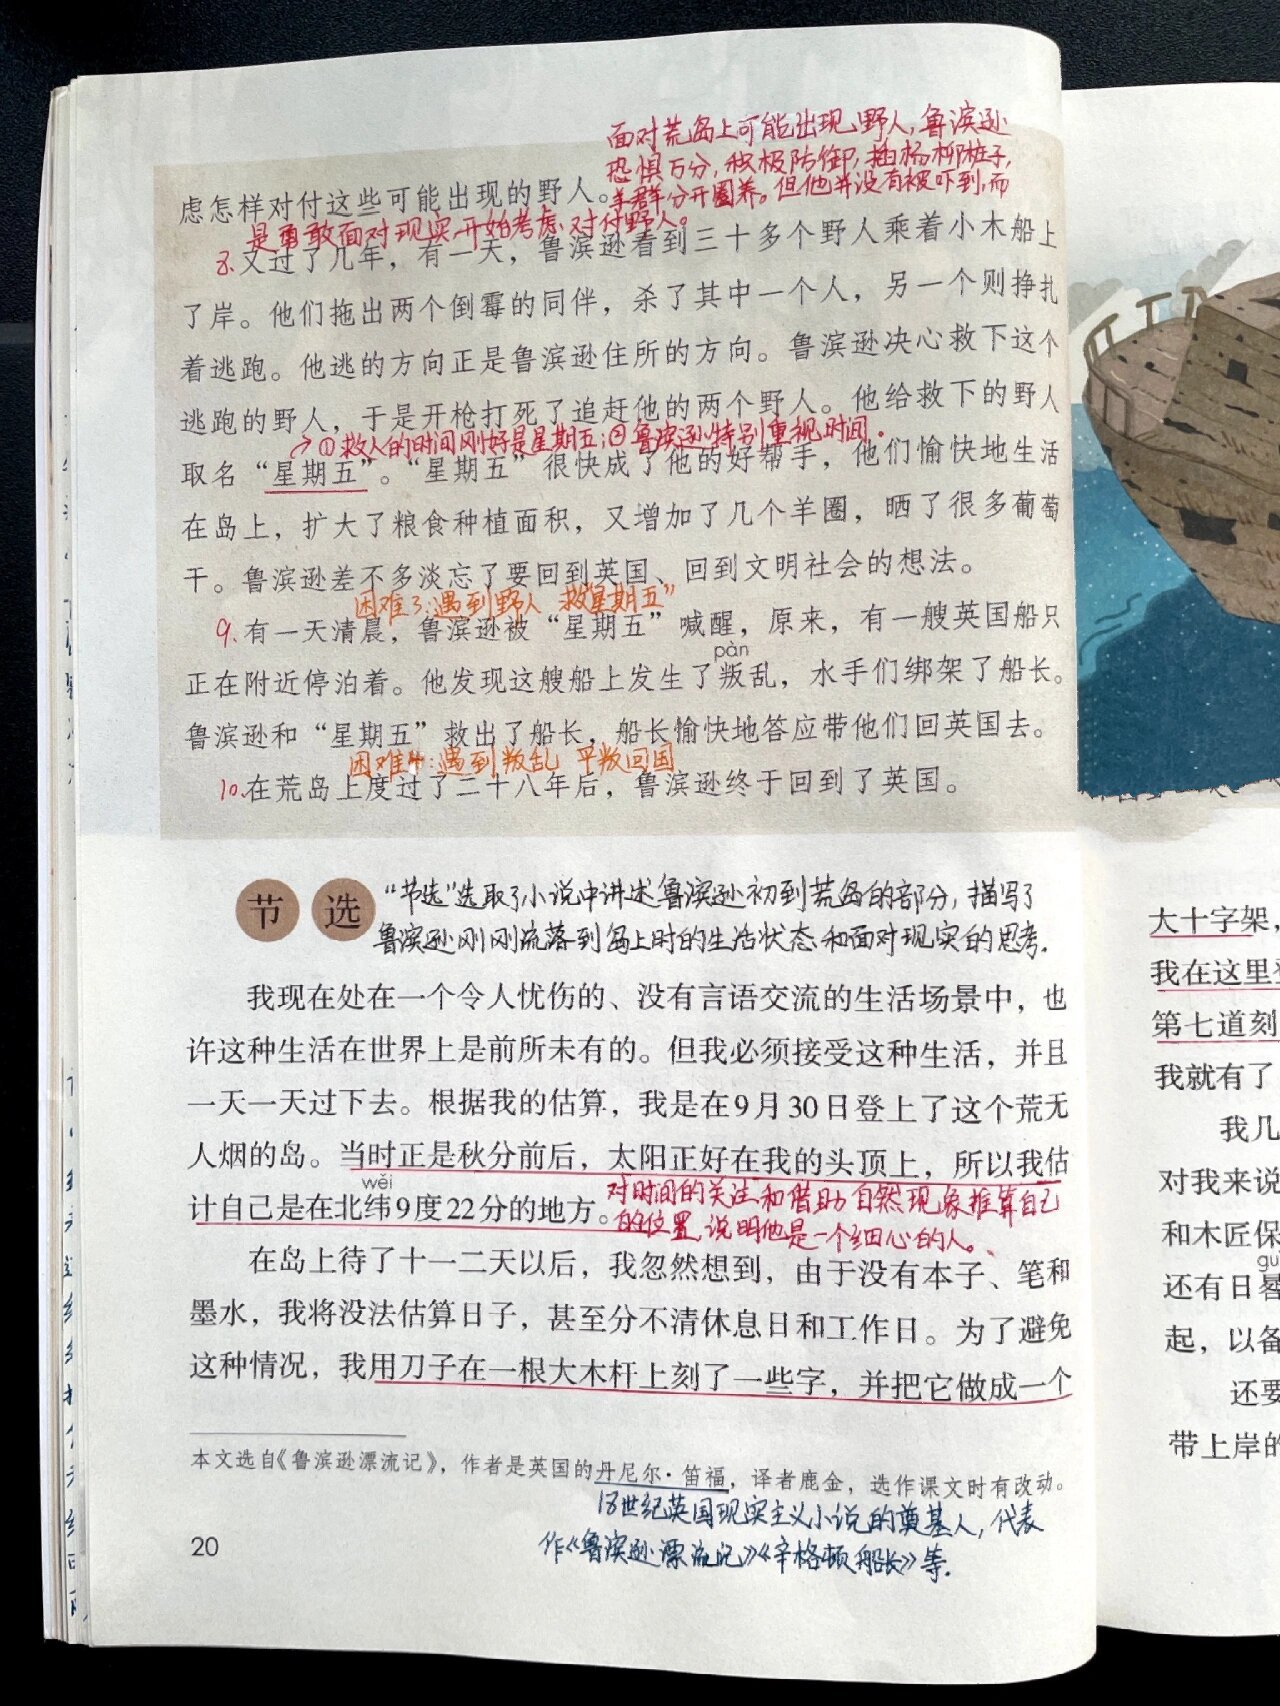 面对荒岛上可能出现野人，鲁滨逊
恐惧万分，积极防御，插杨柳桩子，
羊群分开圈养。但他并没有被吓到，而
是勇敢面对现实，开始考虑对付野人。
虑怎样对付这些可能出现的野人。
8.又过了几年，有一天，鲁滨逊看到三十多个野人乘着小木船上
了岸。他们拖出两个倒霉的同伴，杀了其中一个人，另一个则挣扎
着逃跑。他逃的方向正是鲁滨逊住所的方向。鲁滨逊决心救下这个
逃跑的野人，于是开枪打死了追赶他的两个野人。他给救下的野人
→①救人的时间刚好是星期五；②鲁滨逊特别重视时间.
取名“星期五”。“星期五”很快成了他的好帮手，他们愉快地生活
在岛上，扩大了粮食种植面积，又增加了几个羊圈，晒了很多葡萄
干。鲁滨逊差不多淡忘了要回到英国、回到文明社会的想法。
困难3:遇到野人 救“星期五”
9.有一天清晨，鲁滨逊被“星期五”喊醒，原来，有一艘英国船只
pàn
正在附近停泊着。他发现这艘船上发生了叛乱，水手们绑架了船长。
鲁滨逊和“星期五”救出了船长，船长愉快地答应带他们回英国去。
困难4:遇到叛乱 平叛回国
10.在荒岛上度过了二十八年后，鲁滨逊终于回到了英国。
节选
“节选”选取了小说中讲述鲁滨逊初到荒岛的部分，描写了
鲁滨逊刚刚流落到岛上时的生活状态和面对现实的思考.
我现在处在一个令人忧伤的、没有言语交流的生活场景中，也
许这种生活在世界上是前所未有的。但我必须接受这种生活，并且
一天一天过下去。根据我的估算，我是在9月30日登上了这个荒无
人烟的岛。当时正是秋分前后，太阳正好在我的头顶上，所以我估
wěi
计自己是在北纬9度22分的地方。
对时间的关注和借助自然现象推算自己
的位置，说明他是一个细心的人。
在岛上待了十一二天以后，我忽然想到，由于没有本子、笔和
墨水，我将没法估算日子，甚至分不清休息日和工作日。为了避免
这种情况，我用刀子在一根大木杆上刻了一些字，并把它做成一个
本文选自《鲁滨逊漂流记》，作者是英国的丹尼尔·笛福，译者鹿金，选作课文时有改动。
18世纪英国现实主义小说的奠基人，代表
作《鲁滨逊漂流记》《辛格顿船长》等.
20
大十字架，
我在这里
第七道刻
我就有了
我几
对我来说
和木匠保
还有日晷
起，以备
还要
带上岸的